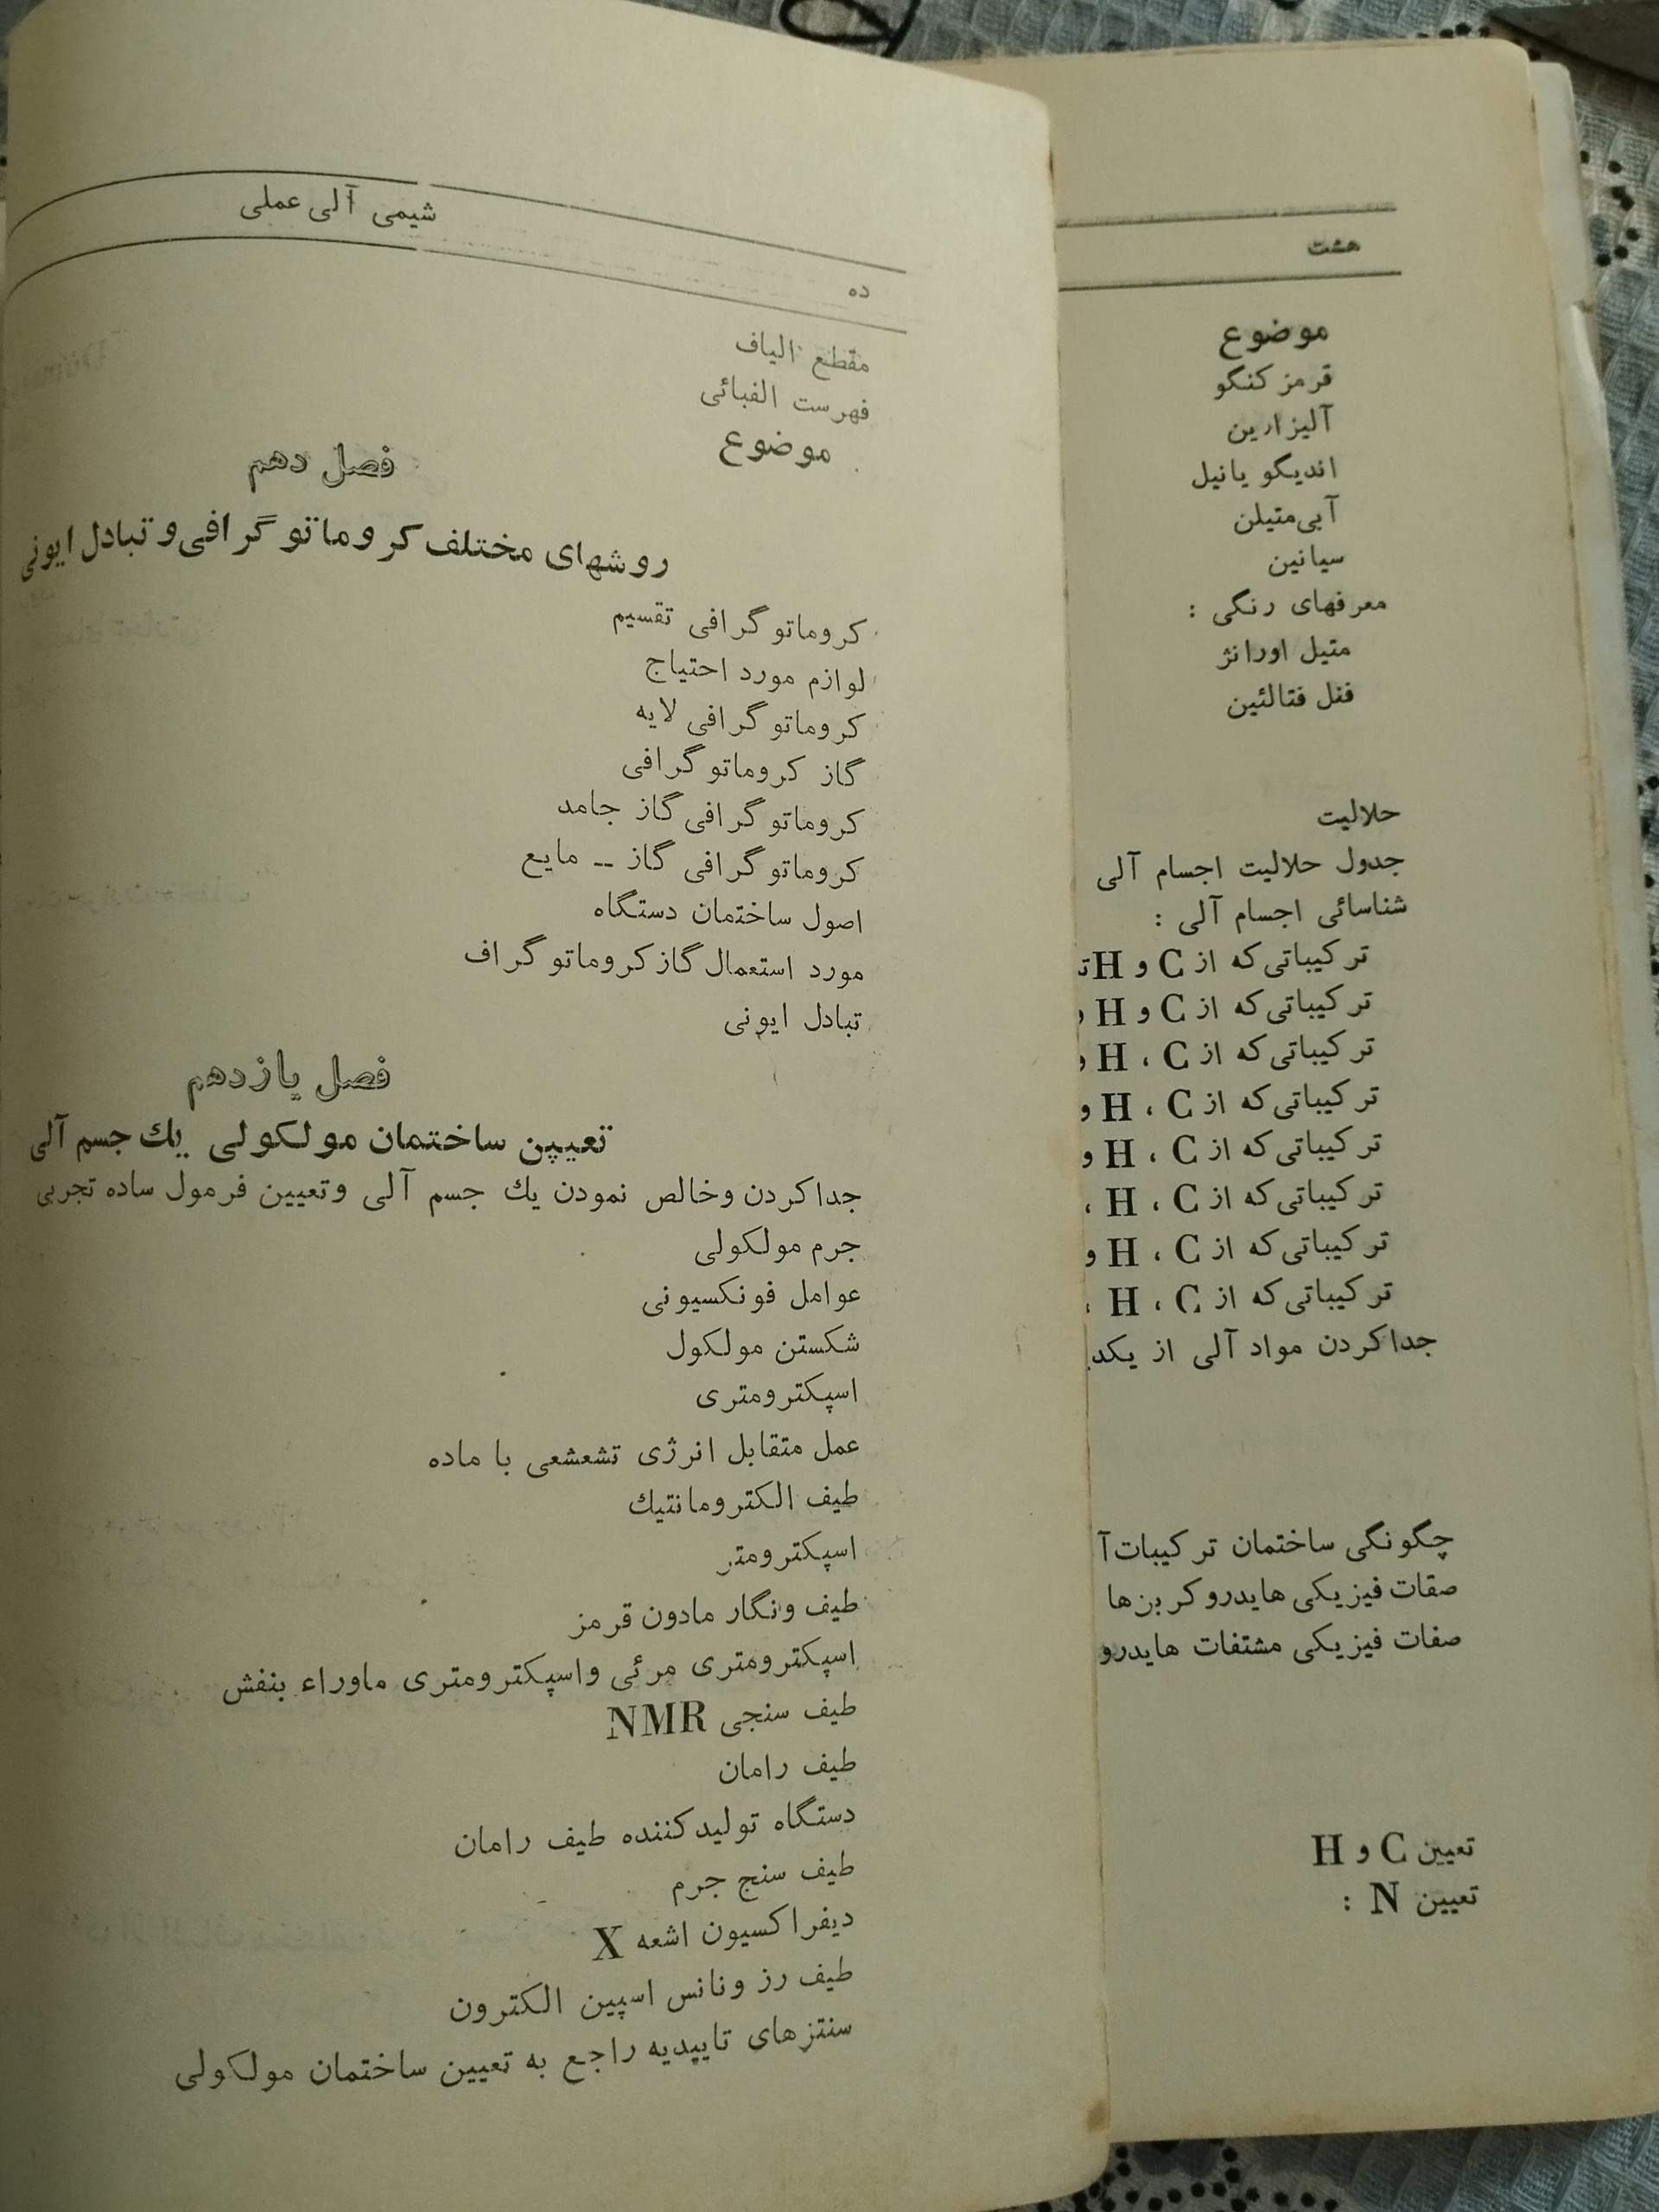 شیمی آلی عملی
ده
مقطع الیاف
فهرست الفبائی
موضوع
فصل دهم
روشهای مختلف کروماتوگرافی و تبادل ایونی
کروماتوگرافی تقسیم
لوازم مورد احتیاج
کروماتوگرافی لایه
گاز کروماتوگرافی
کروماتوگرافی گاز جامد
کروماتوگرافی گاز -- مایع
اصول ساختمان دستگاه
مورد استعمال گاز کروماتوگراف
تبادل ایونی
فصل یازدهم
تعیین ساختمان مولکولی یك جسم آلی
جدا کردن و خالص نمودن یك جسم آلی و تعیین فرمول ساده تجربی
جرم مولکولی
عوامل فونکسیونی
شکستن مولکول
اسپکترومتری
عمل متقابل انرژی تشعشعی با ماده
طیف الکترومانتیك
اسپکترومتر
طیف ونگار مادون قرمز
اسپکترومتری مرئی و اسپکترومتری ماوراء بنفش
طیف سنجی NMR
طیف رامان
دستگاه تولید کننده طیف رامان
طیف سنج جرم
دیفراکسیون اشعه X
طیف رزونانس اسپین الکترون
سنتزهای تاییدیه راجع به تعیین ساختمان مولکولی
هشت
موضوع
قرمز کنگو
آلیزارین
اندیگو یانیل
آبی متیلن
سیانین
معرفهای رنگی :
متیل اورانژ
فنل فتالئین
حلالیت
جدول حلالیت اجسام آلی
شناسائی اجسام آلی :
ترکیباتی که از C و H
ترکیباتی که از C و H و
ترکیباتی که از C ، H و
ترکیباتی که از C ، H و
ترکیباتی که از C ، H و
ترکیباتی که از C ، H ،
ترکیباتی که از C ، H و
ترکیباتی که از C ، H ،
جدا کردن مواد آلی از یکد
چگونگی ساختمان ترکیبات آ
صقات فیزیکی هایدروکربن‌ها
صفات فیزیکی مشتفات هایدرو
تعیین C و H
تعیین N :